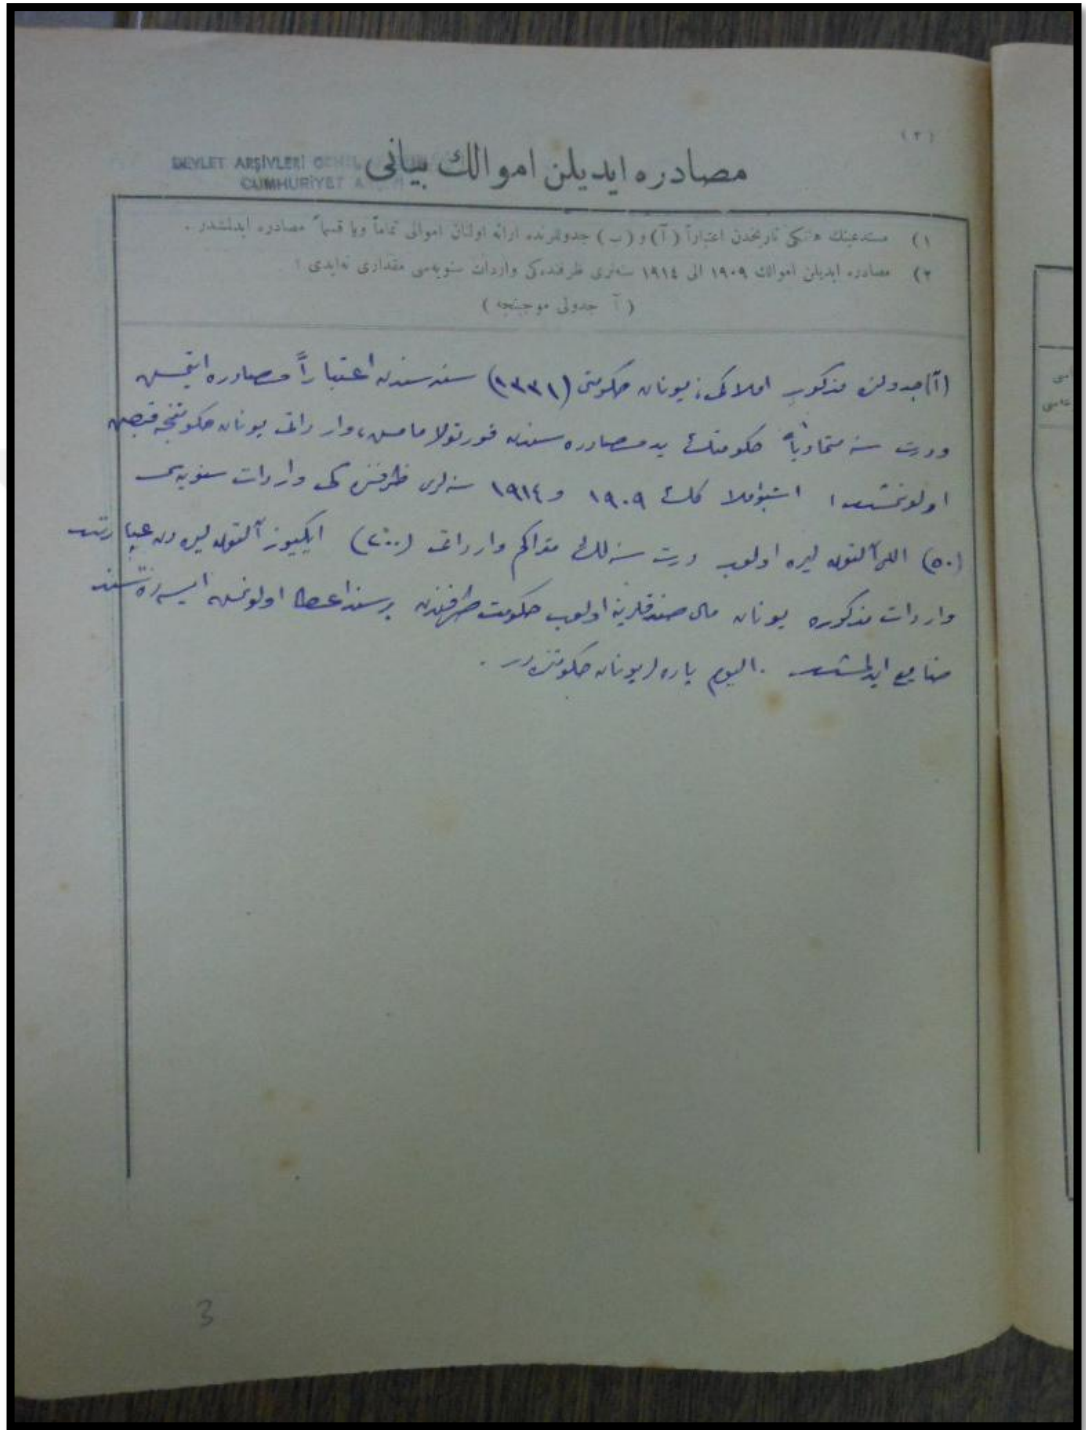 (٢)
DEVLET ARŞİVLERİ GENEL
CUMHURİYET
مصادره ایدیلن اموالك بیانی
١) مستدعینك هانكی تاریخدن اعتباراً (آ) و (ب) جدوللرنده ارائه اولنان اموالی تماماً ویا قسماً مصادره ایدلمشدر.
٢) مصادره ایدیلن اموالك ١٩٠٩ الی ١٩١٤ سنه‌لری ظرفنده‌كی واردات سنویه‌سی مقداری نه‌ایدی ؟
( آ جدولی موجبنجه )
(آ) جدولنده مذكور املاكی یونان حكومتی (١٣٣١) سنه‌سندن اعتباراً مصادره ایتمش
درت سنه متمادیاً حكومتك ید مصادره سندن قورتولامامش، وارداتی یونان حكومتنجه قبض
اولونمشدر. ١٩٠٩ و ١٩١٤ سنه‌لری ظرفنده‌كی واردات سنویه‌سی
(٥٠) اللی آلتون لیره اولوب درت سنه‌لك متراكم وارداتی (٢٠٠) ایكیوز آلتون لیره‌دن عبارتدر
واردات مذكوره یونان مال صندقلرینه اولوب حكومت طرفندن برسند اعطا اولونمش ایسه‌ده
ضایع ایدلمشدر. الیوم پاره یونان حكومتنده‌در.
3